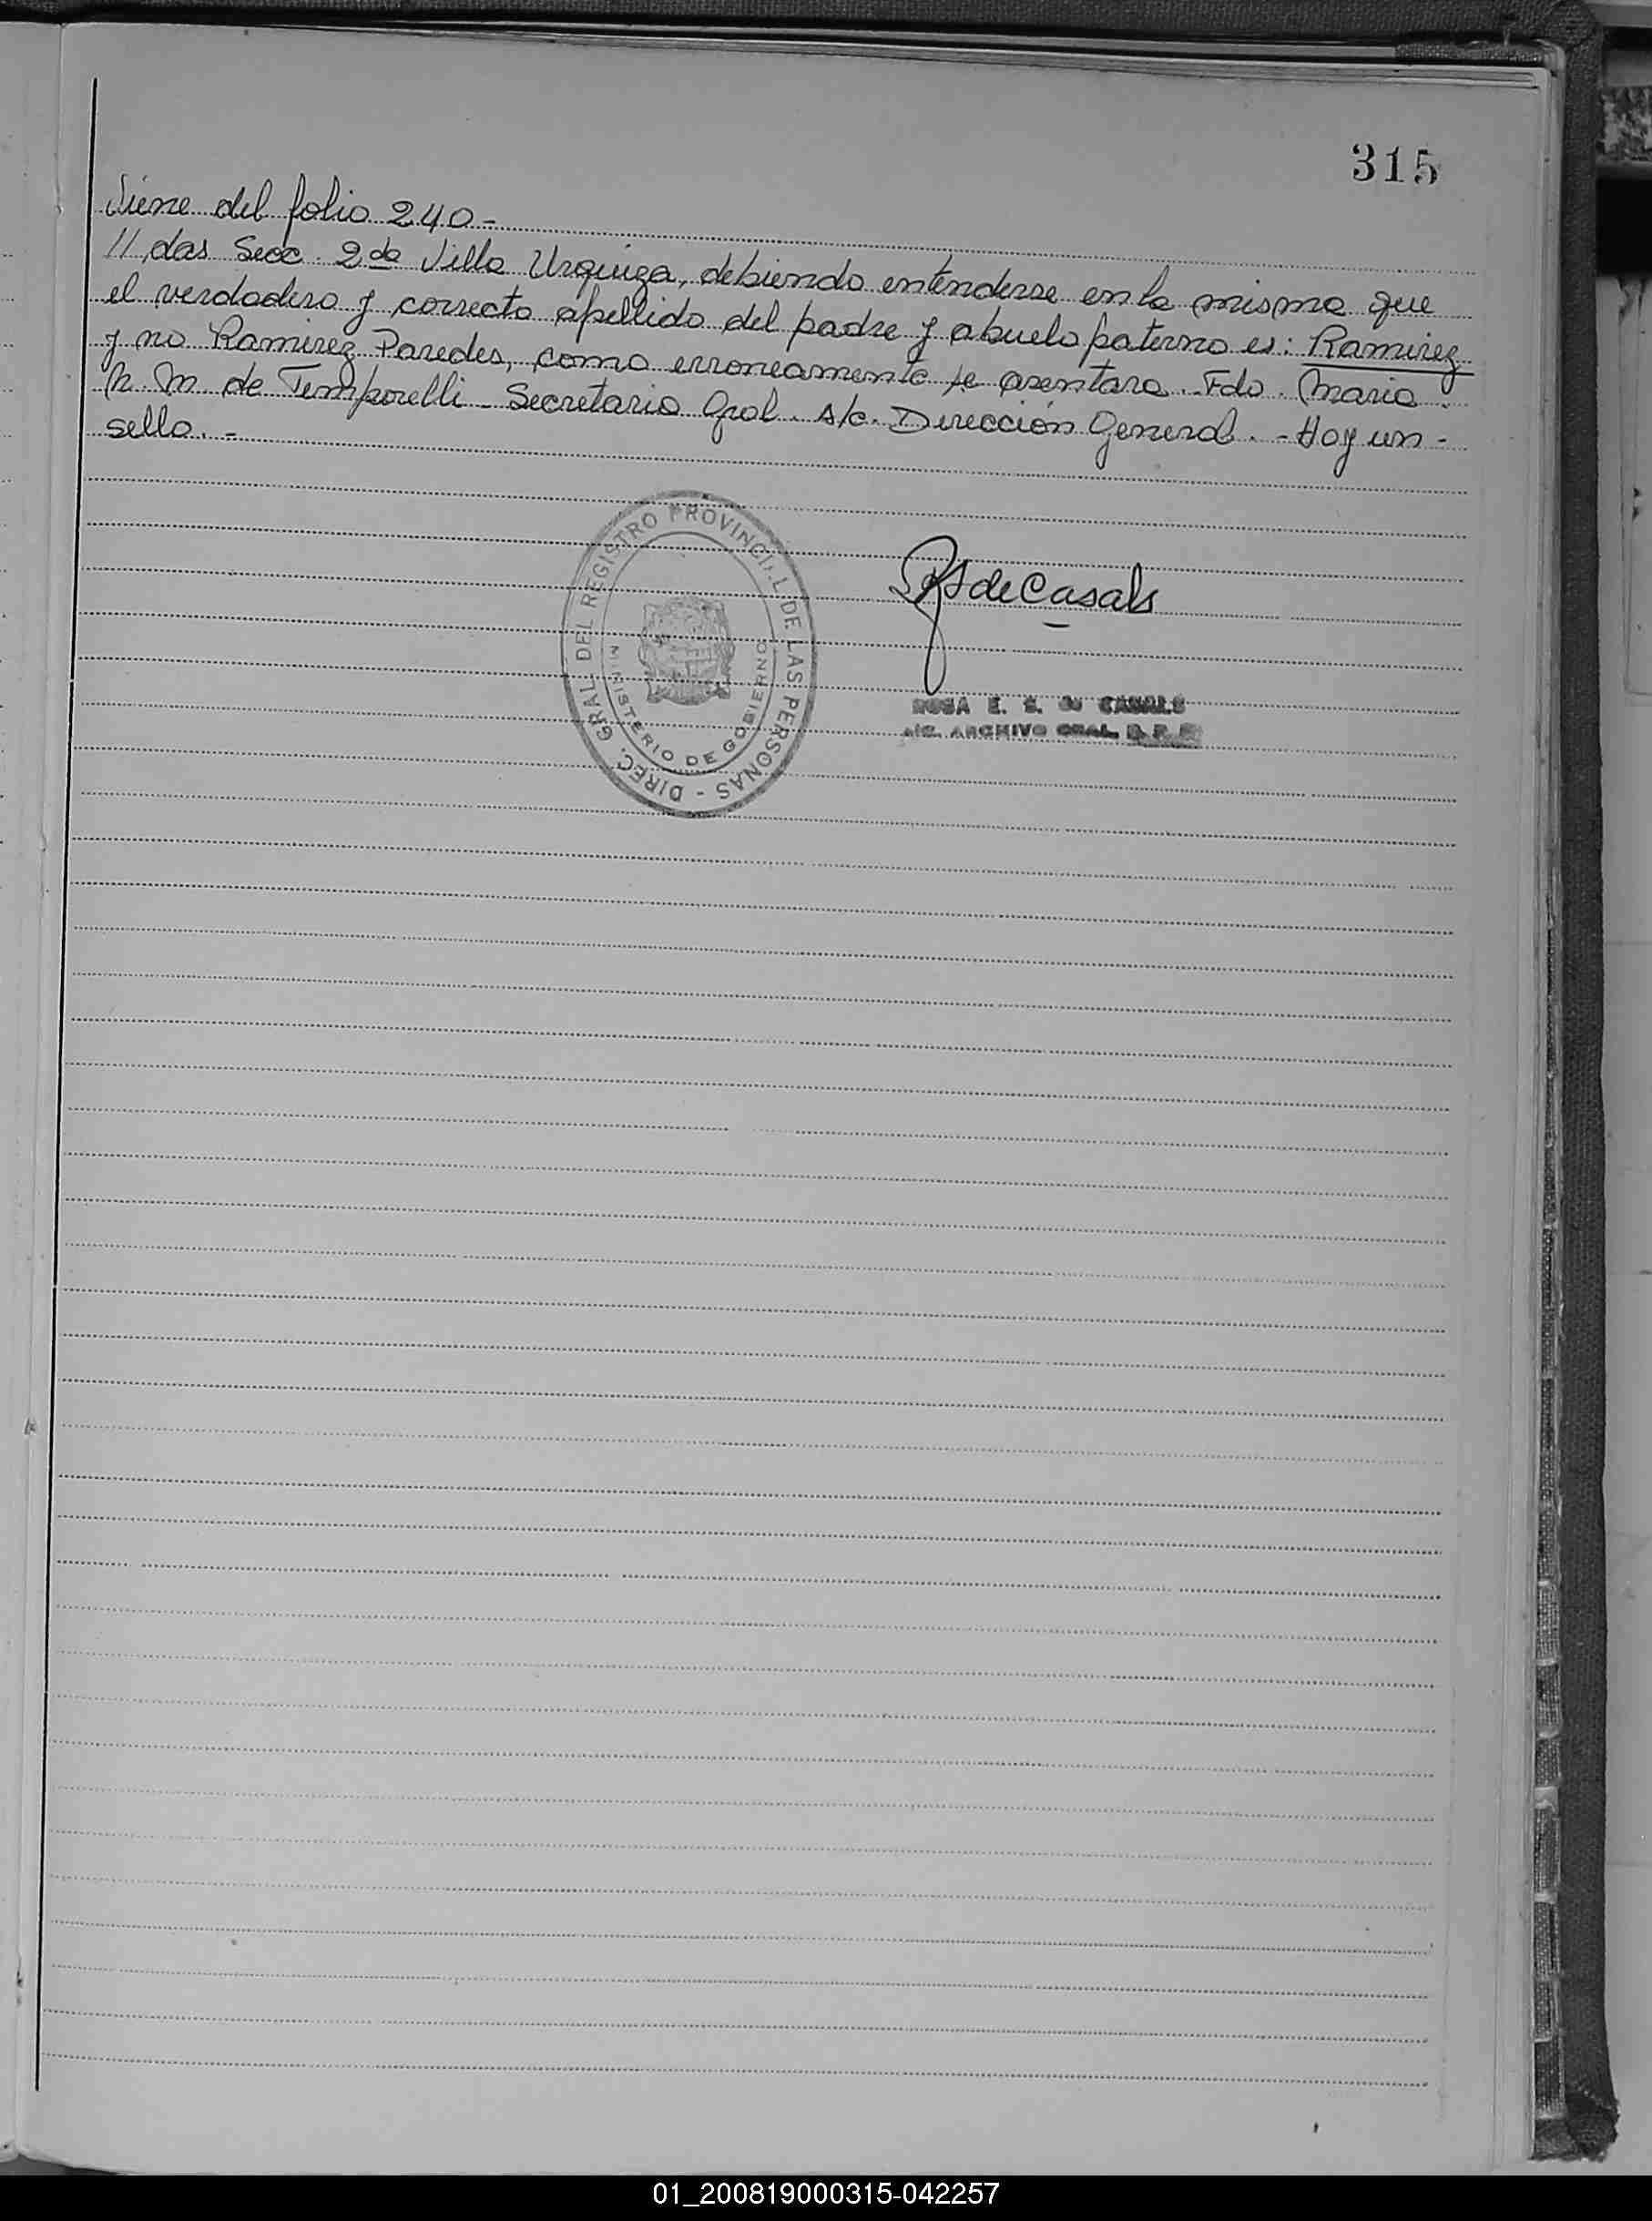 315
Viene del folio 240.-
// das Secc. 2da Villa Urquiza, debiendo entenderse en la misma que
el verdadero y correcto apellido del padre y abuelo paterno es: Ramirez
y no Ramirez Paredes, como erroneamente se asentara. Fdo. Maria
M. de Temporelli - Secretaria Gral. a/c. Dirección General. - Hay un -
sello. -
DIREC. GRAL. DEL REGISTRO PROVINCI.L DE LAS PERSONAS -
MINISTERIO DE GOBIERNO
de Casals
ROSA E. S. de CASALS
A/C. ARCHIVO GRAL.
01_200819000315-042257